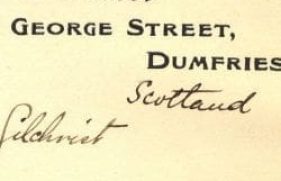 GEORGE STREET,
DUMFRIES
Scotland
Gilchrist